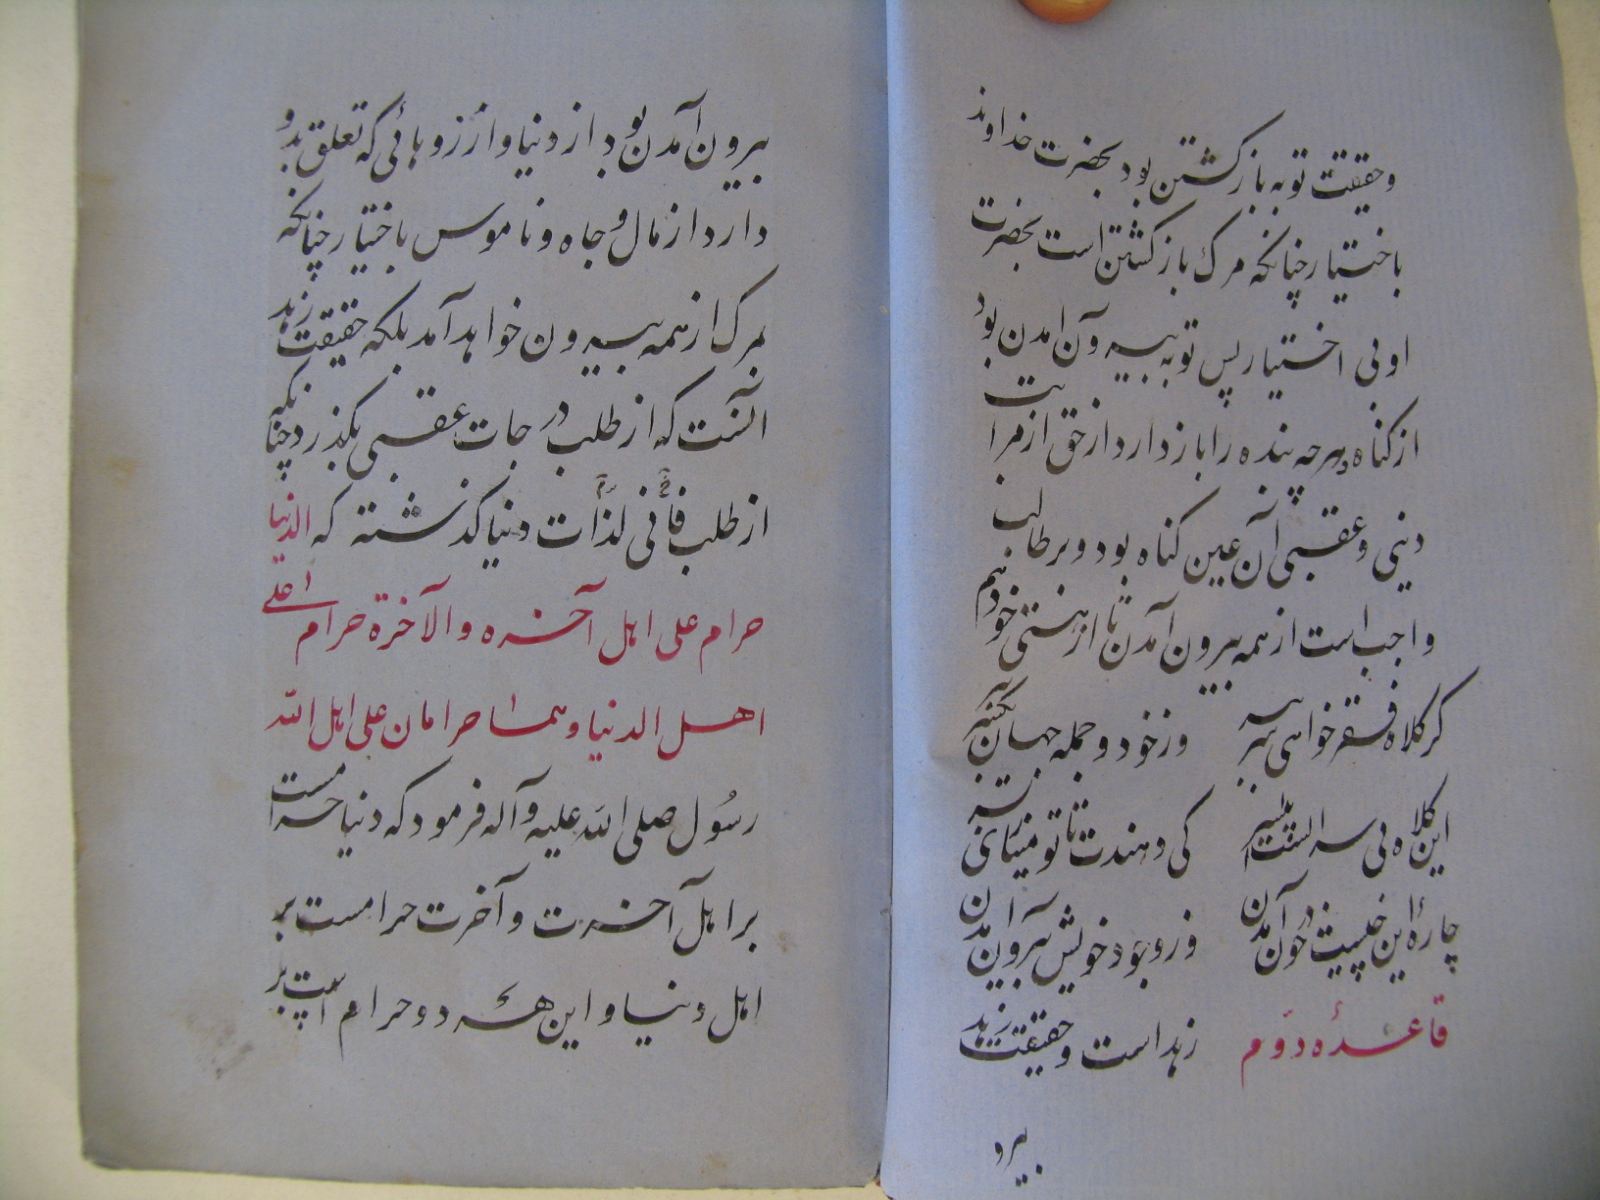 وحقیقت توبه بازگشتن بود بحضرت خداوند
باختیار چنانکه مرگ بازگشتن است بحضرت
او بی اختیار پس توبه بیرون آمدن بود
از کناه و هرچه بنده را باز دارد از حق از مراتب
دینی و عقبی آن عین کناه بود و بر طالب
واجب است از همه بیرون آمدن تا از هستی خود هم
کر کلاه فقر خواهی سر ببر وز خود و جمله جهان یکسر ببر
این کلاه بی سر است ای پسر کی دهندت تا تو مینازی بسر
چارهٔ این چیست در خون آمدن وز وجود خویش بیرون آمدن
قاعدهٔ دوم زهد است و حقیقت زهد
بیرو
بیرون آمدن بود از دنیا و آرزوهائی که تعلق بدو
دارد از مال و جاه و ناموس باختیار چنانکه
بمرگ از همه بیرون خواهد آمد بلکه حقیقت زهد
آنست که از طلب درجات عقبی بکذرد چنانکه
از طلب فانی لذّات دنیا کذشته که الدنیا
حرام علی اهل آخره والآخرة حرام علی
اهل الدنیا و هما حرامان علی اهل الله
رسُول صلی الله علیه وآله فرمود که دنیا حرامست
بر اهل آخرت و آخرت حرامست بر
اهل دنیا و این هر دو حرام است بر